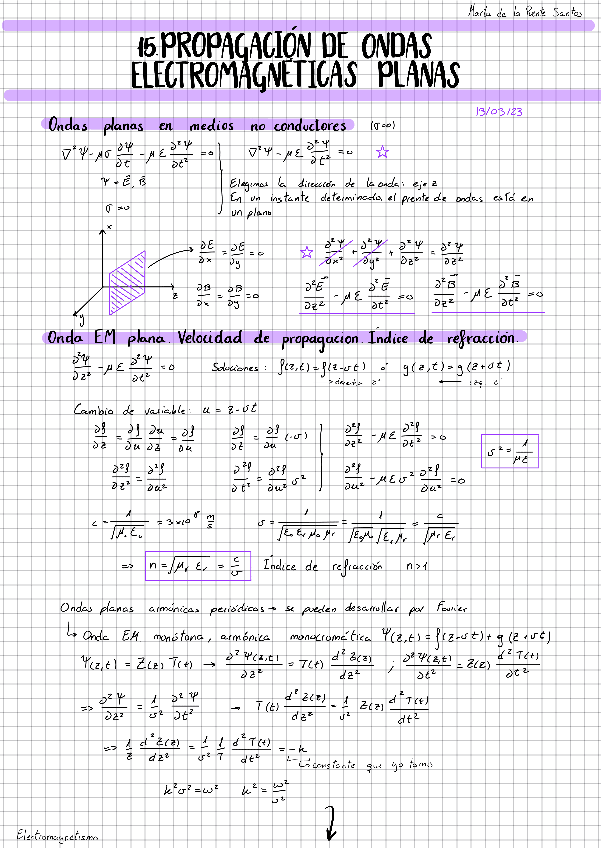 María de la Puente Santos
15. PROPAGACIÓN DE ONDAS
ELECTROMAGNÉTICAS PLANAS
13/03/23
Ondas planas en medios no conductores (σ=0)
∇²Ψ - μσ ∂Ψ/∂t - με ∂²Ψ/∂t² = 0    ∇²Ψ - με ∂²Ψ/∂t² = 0 ☆
Ψ = E⃗, B⃗
σ = 0
Elegimos la dirección de la onda: eje z
En un instante determinado, el frente de ondas está en
un plano
x
y
z
∂E/∂x = ∂E/∂y = 0
☆ ∂²Ψ/∂x² + ∂²Ψ/∂y² + ∂²Ψ/∂z² = ∂²Ψ/∂z²
∂B/∂x = ∂B/∂y = 0
∂²E⃗/∂z² - με ∂²E⃗/∂t² = 0    ∂²B⃗/∂z² - με ∂²B⃗/∂t² = 0
Onda EM plana. Velocidad de propagación. Índice de refracción.
∂²Ψ/∂z² - με ∂²Ψ/∂t² = 0    Soluciones: f(z,t) = f(z-vt) ó g(z,t) = g(z+vt)
Cambio de variable: u = z-vt
∂f/∂z = ∂f/∂u ∂u/∂z = ∂f/∂u    ∂f/∂t = ∂f/∂u (-v)    ∂²f/∂z² - με ∂²f/∂t² = 0
v² = 1/με
∂²f/∂z² = ∂²f/∂u²    ∂²f/∂t² = ∂²f/∂u² v²    ∂²f/∂u² - με v² ∂²f/∂u² = 0
c = 1/√(μ₀ε₀) = 3×10⁸ m/s    v = 1/√(ε₀ εr μ₀ μr) = 1/(√(ε₀μ₀) √(εr μr)) = c/√(μr εr)
⇒ n = √(μr εr) = c/v    Índice de refracción    n>1
Ondas planas armónicas periódicas → se pueden desarrollar por Fourier
↳ Onda EM monótona, armónica monocromática Ψ(z,t) = f(z-vt) + g(z+vt)
Ψ(z,t) = Z(z) T(t) → ∂²Ψ(z,t)/∂z² = T(t) d²Z(z)/dz² ; ∂²Ψ(z,t)/∂t² = Z(z) d²T(t)/dt²
⇒ ∂²Ψ/∂z² = 1/v² ∂²Ψ/∂t² → T(t) d²Z(z)/dz² = 1/v² Z(z) d²T(t)/dt²
⇒ 1/Z d²Z(z)/dz² = 1/v² 1/T d²T(t)/dt² = -k
↳ constante que yo tomo
k²v² = ω²    k² = ω²/v²
Electromagnetismo